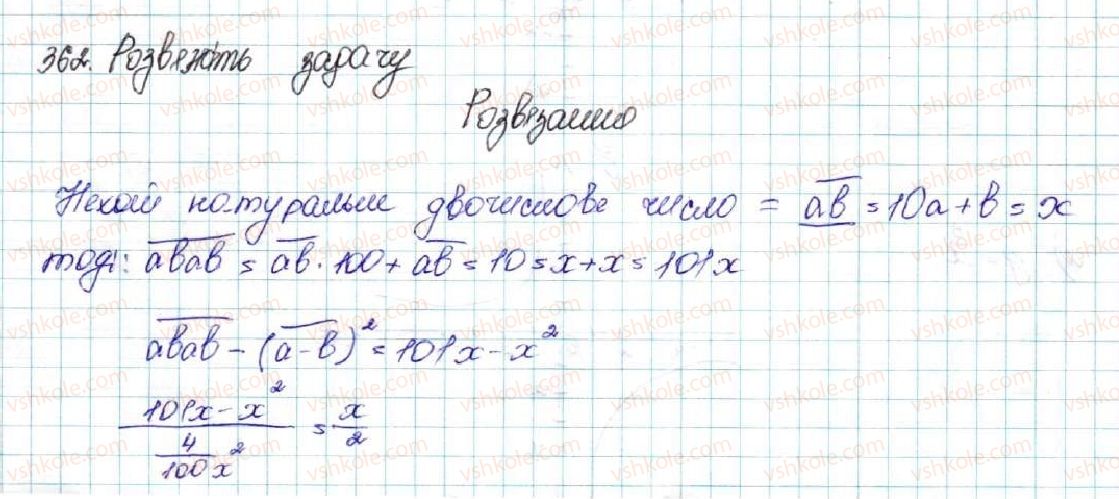 362. Розвяжіть задачу
Розвязанню
Нехай натуральне двочислове число = ab = 10a + b = x
тоді: abab = ab · 100 + ab = 10 = x + x = 101x
abab - (a - b)² = 101x - x²
101x - x²
4
100x² = x/2